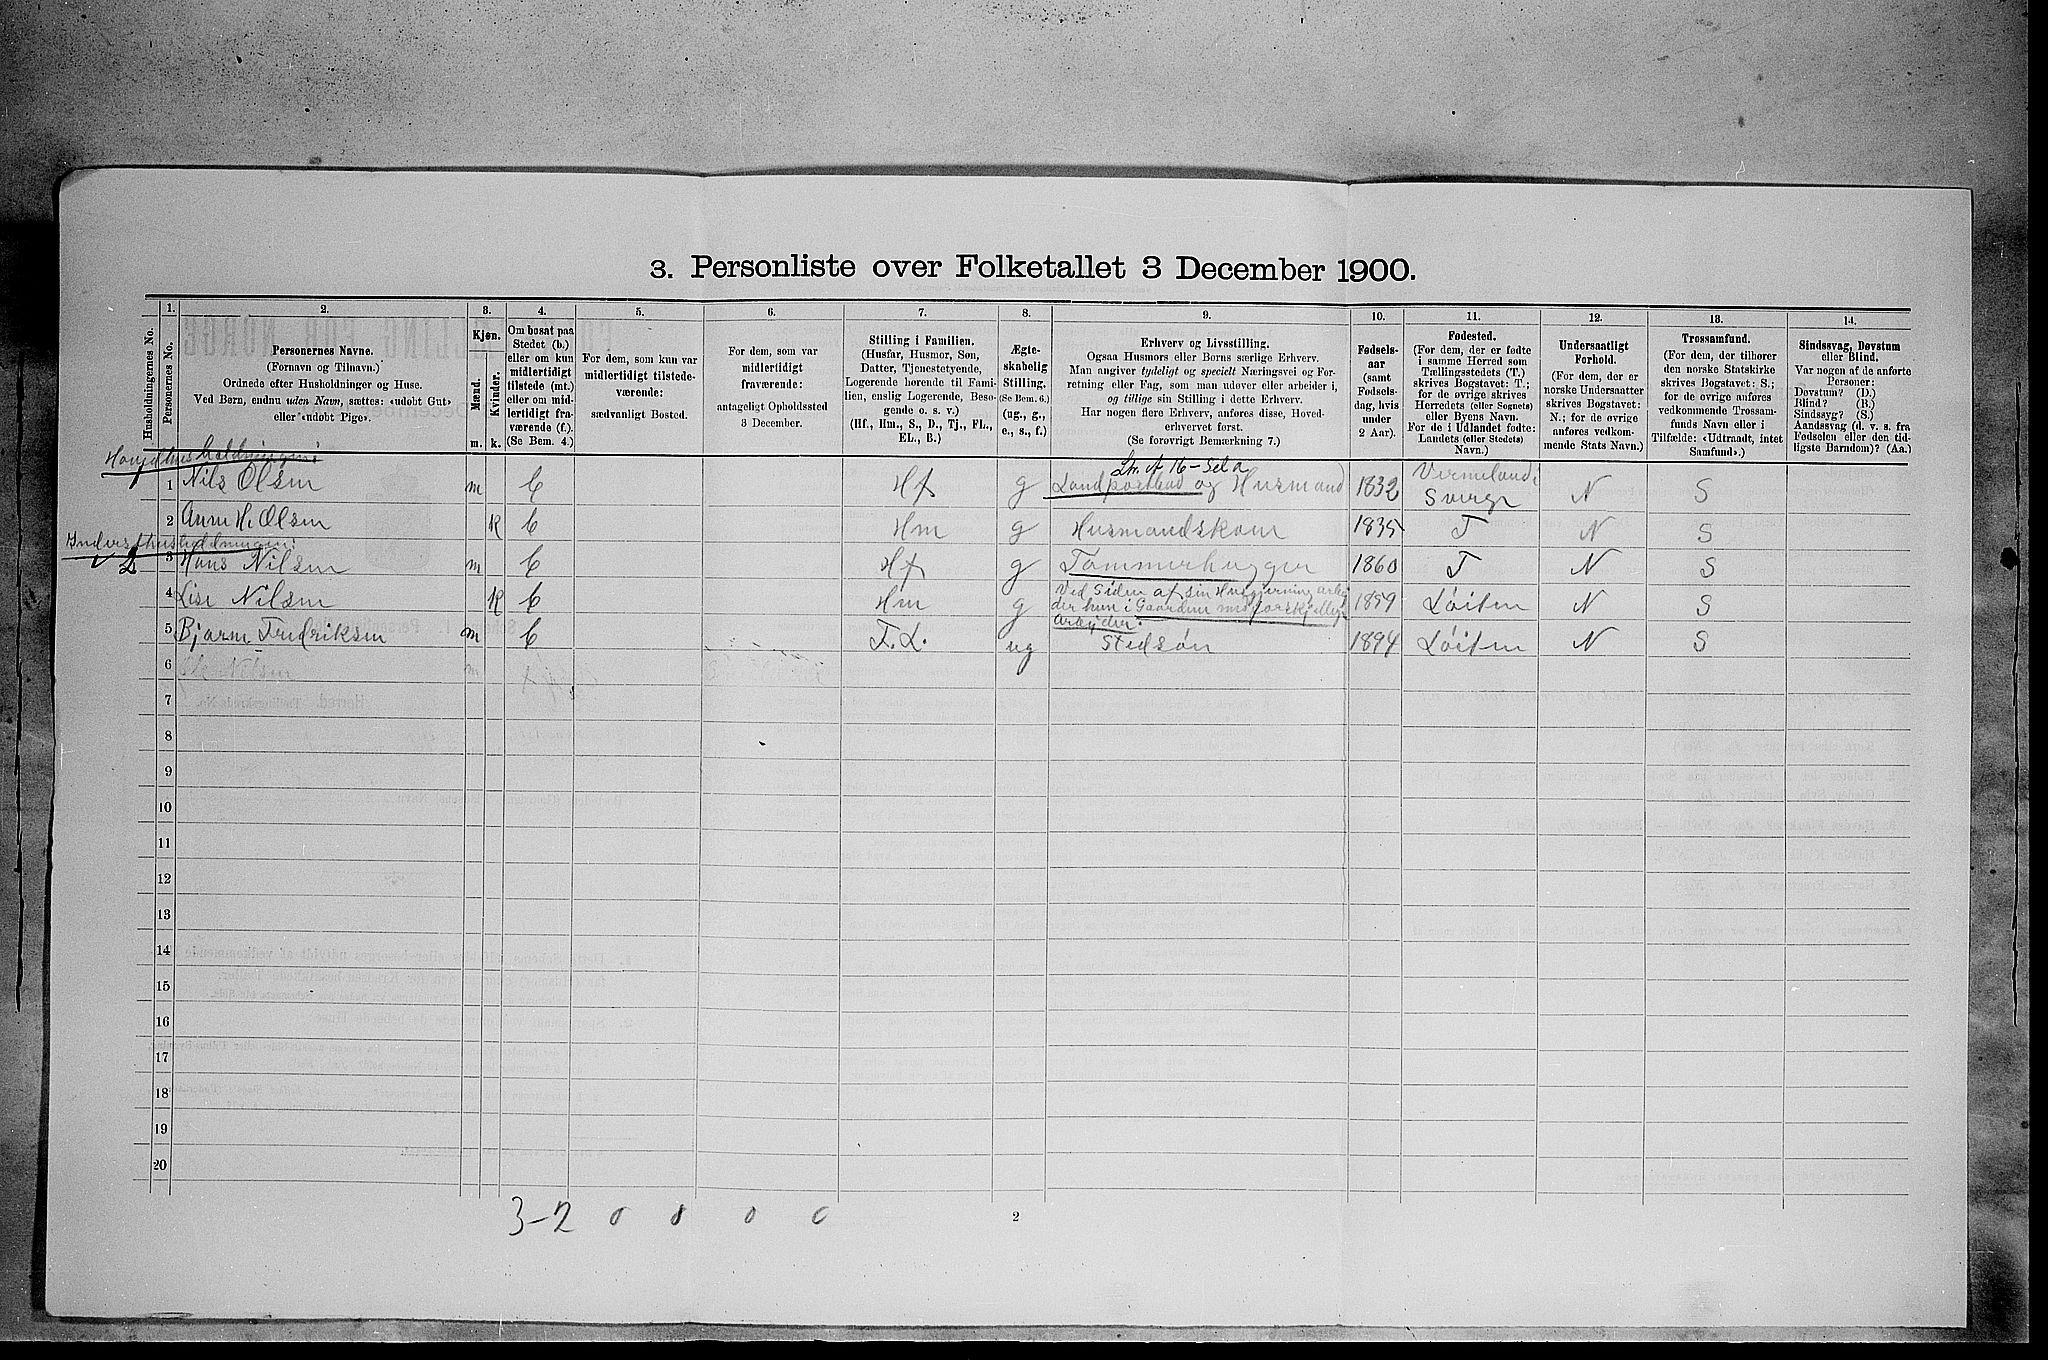 3. Personliste over Folketallet 3 December 1900.
Husholdningernes No.
1.
Personernes No.
2.
Personernes Navne.
(Fornavn og Tilnavn.)
Ordnede efter Husholdninger og Huse.
Ved Børn, endnu uden Navn, sættes: «udøbt Gut»
eller «udøbt Pige».
3.
Kjøn.
Mænd.
Kvinder.
m. k.
4.
Om bosat paa
Stedet (b.)
eller om kun
midlertidigt
tilstede (mt.)
eller om mid-
lertidigt fra-
værende (f.).
(Se Bem. 4.)
5.
For dem, som kun var
midlertidigt tilstede-
værende:
sædvanligt Bosted.
6.
For dem, som var
midlertidigt
fraværende:
antageligt Opholdssted
3 December.
7.
Stilling i Familien.
(Husfar, Husmor, Søn,
Datter, Tjenestetyende,
Logerende hørende til Fami-
lien, enslig Logerende, Besø-
gende o. s. v.)
(Hf., Hm., S., D., Tj., FL.,
EL., B.)
8.
Ægte-
skabelig
Stilling.
(Se Bem. 6.)
(ug., g.,
e., s., f.)
9.
Erhverv og Livsstilling.
Ogsaa Husmors eller Børns særlige Erhverv.
Man angiver tydeligt og specielt Næringsvei og For-
retning eller Fag, som man udøver eller arbeider i,
og tillige sin Stilling i dette Erhverv.
Har nogen flere Erhverv, anføres disse, Hoved-
erhvervet først.
(Se forøvrigt Bemærkning 7.)
10.
Fødsels-
aar
(samt
Fødsels-
dag, hvis
under
2 Aar).
11.
Fødested.
(For dem, der er fødte
i samme Herred som
Tællingsstedets (T.)
skrives Bogstavet: T.;
for de øvrige skrives
Herredets (eller Sognets)
eller Byens Navn.
For de i Udlandet fødte:
Landets (eller Stedets)
Navn.)
12.
Undersaatligt
Forhold.
(For dem, der er
norske Undersaatter
skrives Bogstavet:
N.; for de øvrige
anføres vedkom-
mende Stats Navn.)
13.
Trossamfund.
(For dem, der tilhører
den norske Statskirke
skrives Bogstavet: S.;
for de øvrige anføres
vedkommende Trossam-
funds Navn eller i
Tilfælde: «Udtraadt, intet
Samfund».)
14.
Sindssvag, Døvstum
eller Blind.
Var nogen af de anførte
Personer:
Døvstum? (D.)
Blind? (B.)
Sindssyg? (S.)
Aandssvag (d. v. s. fra
Fødselen eller den tid-
ligste Barndom)? (Aa.)
Hovedhusholdningen:
1 Nils Olsen m b Hf g Landpostbud og Husmand 1832 Vermeland, Sverge N S
2 Anne H. Olsen k b Hm g Husmandskone 1835 T N S
2
3 Hans Nilsen m b Hf g Tømmerhugger 1860 T N S
4 Lise Nilsen k b Hm g Ved Siden af sin Husgjerning arbei
der hun i Gaarden med forskjellige
Arbeider. 1859 Løiten N S
5 Bjarne Fredriksen m b F.L. ug Stedsøn 1894 Løiten N S
6 Nilsen m
7
8
9
10
11
12
13
14
15
16
17
18
19
20
3-2 0 0 0 0
2